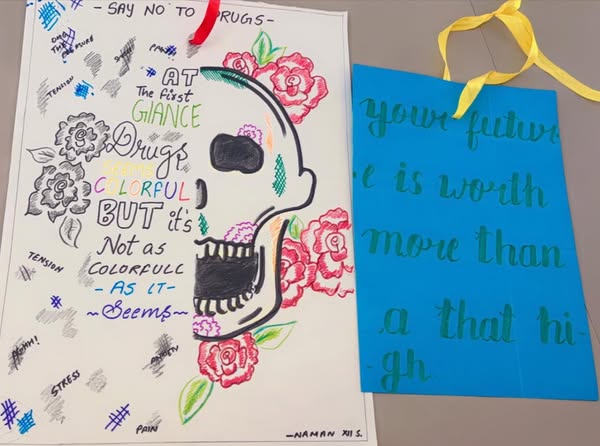 - SAY NO TO DRUGS -
TENSION
AT
The first
GLANCE
Drugs
COLORFUL
BUT it's
Not as
COLORFULL
- AS IT -
~Seems~
TENSION
AHHH!
STRESS
PAIN
-NAMAN XII S.
your futur
-e is worth
more than
a that hi-
gh